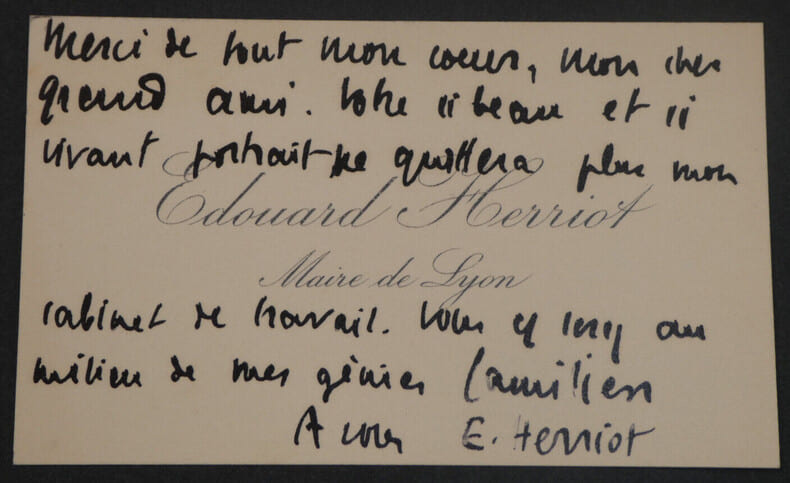 Merci de tout mon coeur, mon cher
grand ami. Votre si beau et si
vivant portrait ne quittera plus mon
Edouard Herriot
Maire de Lyon
cabinet de travail. Vous y serez au
milieu de mes génies familiers
A vous E. Herriot